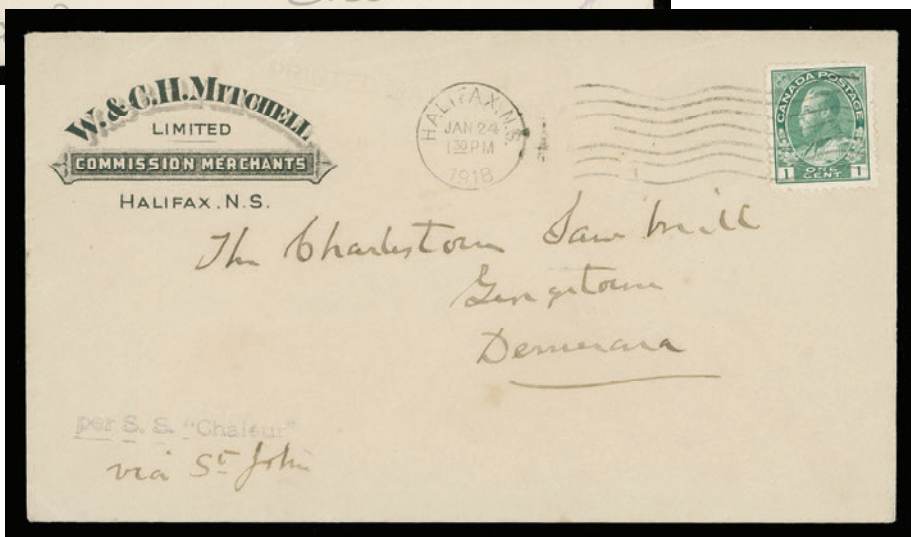 W. & C.H. MITCHELL
LIMITED
COMMISSION MERCHANTS
HALIFAX. N.S.
HALIFAX, N.S.
JAN 24
1 30 PM
1918
CANADA POSTAGE
1 ONE CENT 1
The Charlestown Saw mill
Georgetown
Demerara
per S. S. "Chaleur"
via St John